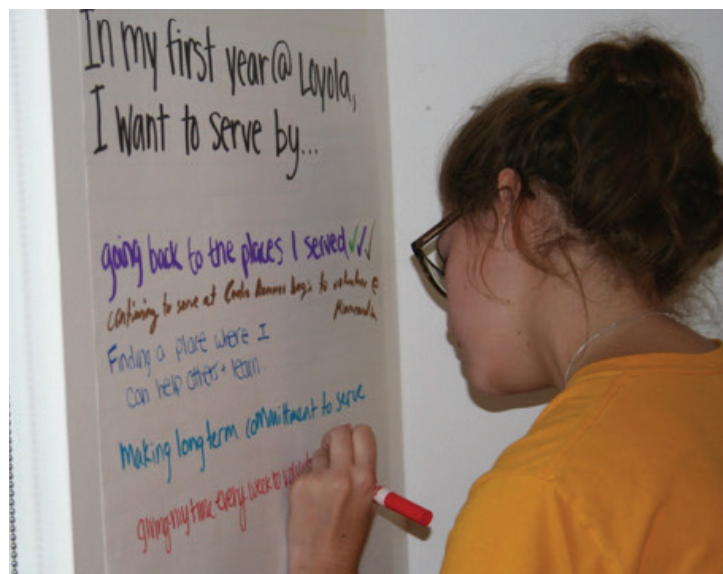 In my first year @ Loyola,
I want to serve by...
going back to the places I served ✓✓✓
continuing to serve at begin to volunteer @
Finding a place where I
can help others + learn
making long term committment to serve
giving my time every week to